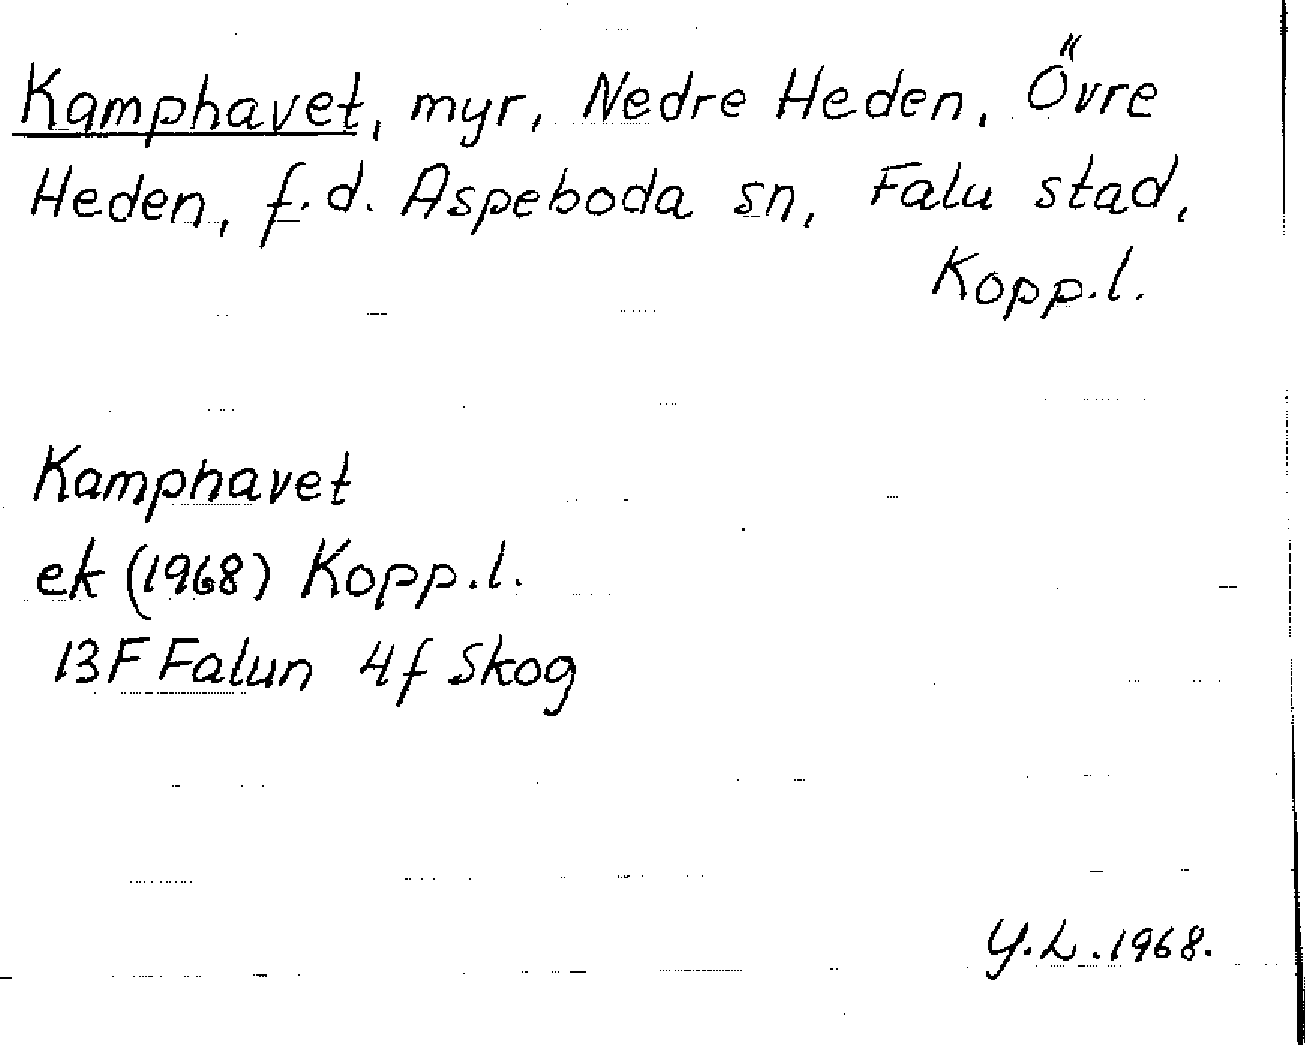 Kamphavet, myr, Nedre Heden, Övre
Heden, f.d. Aspeboda sn, Falu stad,
Kopp.l.
Kamphavet
ek (1968) Kopp.l.
13F Falun 4f Skog
Y.L. 1968.